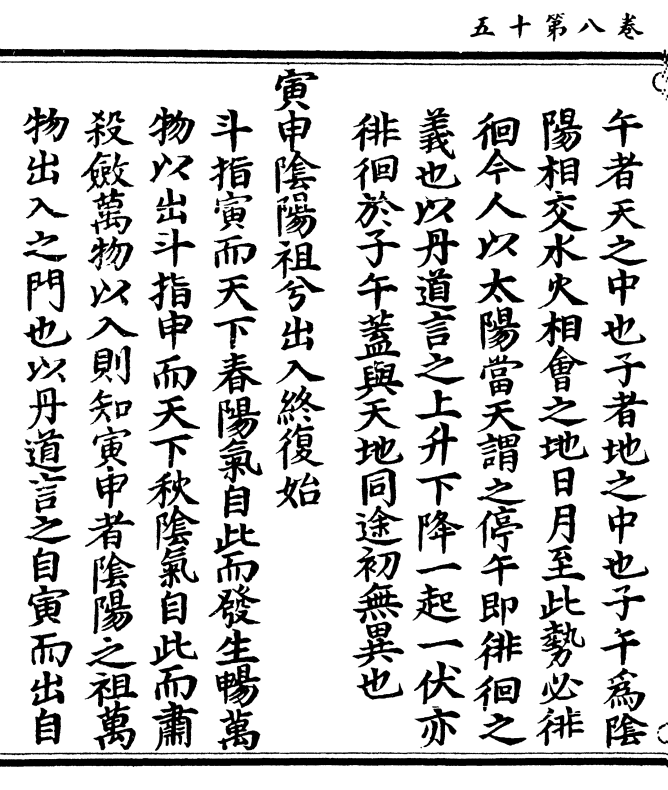 卷八第十五
午者天之中也子者地之中也子午爲陰
陽相交水火相會之地日月至此勢必徘
徊今人以太陽當天謂之停午即徘徊之
義也以丹道言之上升下降一起一伏亦
徘徊於子午蓋與天地同途初無異也
寅申陰陽祖兮出入終復始
斗指寅而天下春陽氣自此而發生暢萬
物以出斗指申而天下秋陰氣自此而肅
殺斂萬物以入則知寅申者陰陽之祖萬
物出入之門也以丹道言之自寅而出自